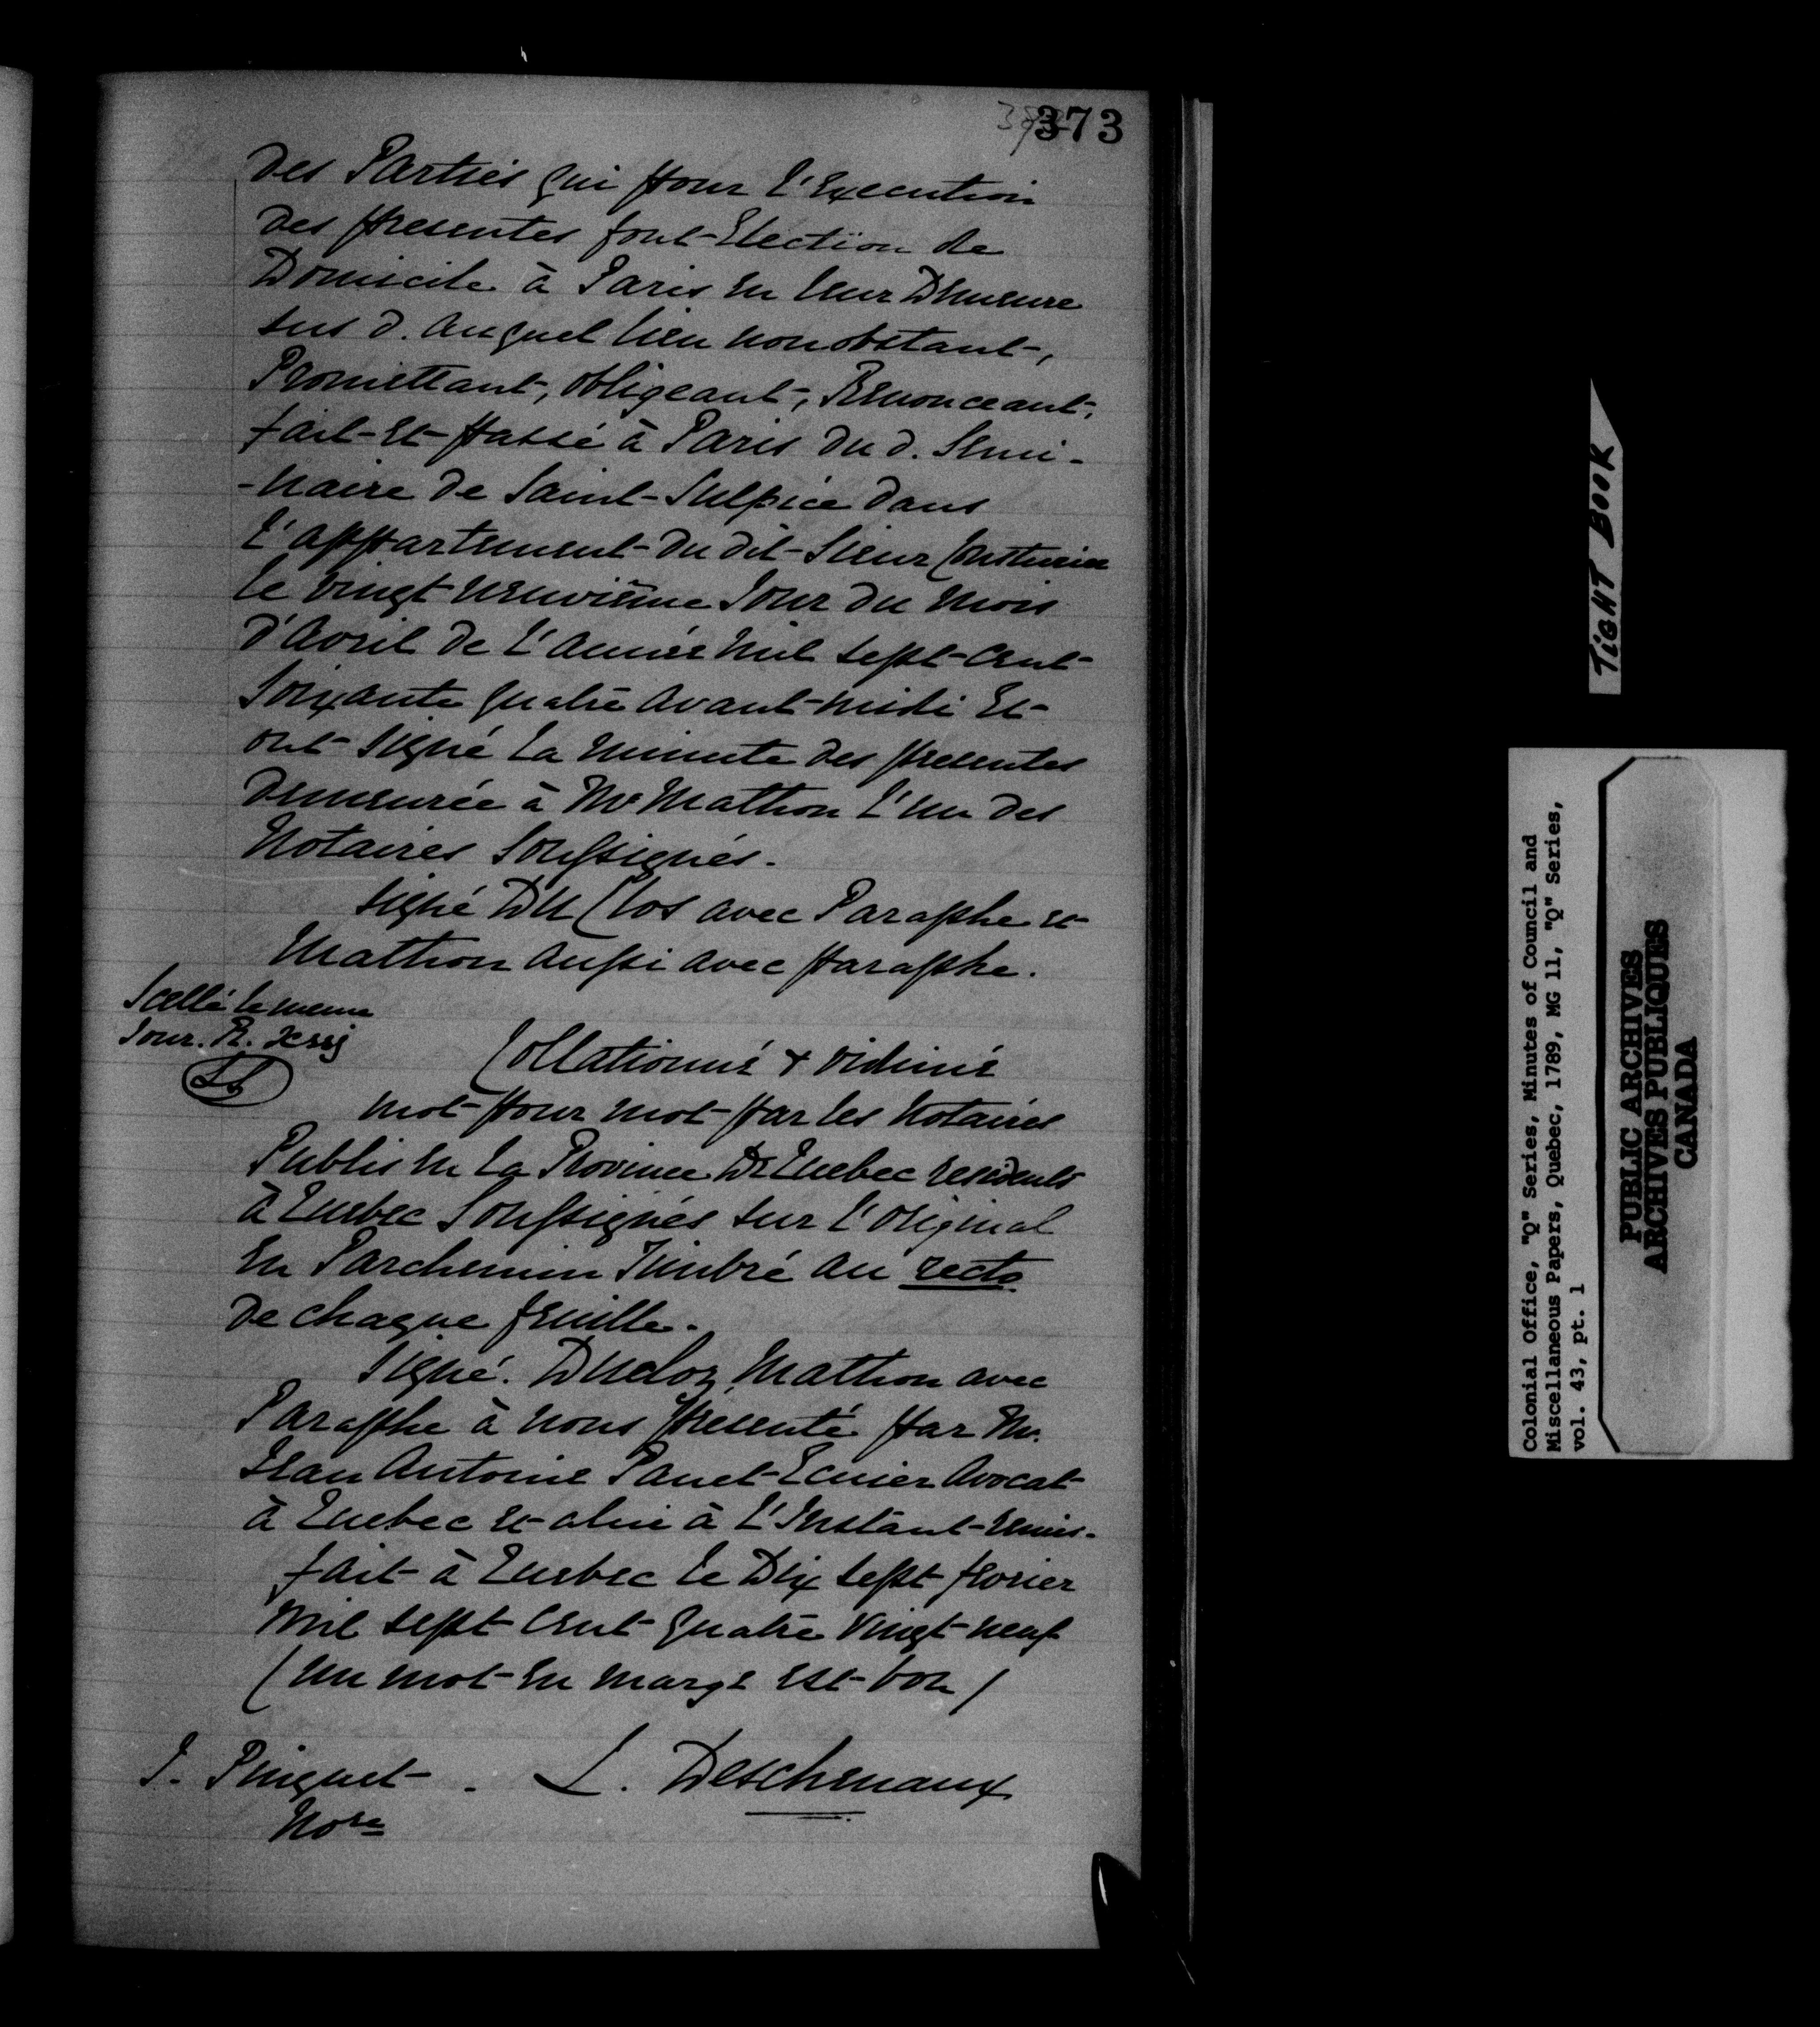 373
Des Parties qui pour l'Execution
Des presentes font Election de
Domicile à Paris en leur Demeure
sus d. auquel lieu nonobstant,
Promettant, obligeant, Renonceant,
fait et passé à Paris du d. Semi-
-naire de Saint Sulpice dans
l'appartement du dit Sieur Couturier
le vingt neuvième Jour du mois
d'Avril de l'année mil sept Cent
Soixante quatre avant midi Et
ont signé la minute des presentes
Demeurée à Me Mathon l'un des
Notaires Soussignés.
signé Du Clos avec Paraphe et
Mathon aussi avec paraphe.
Scellé le meme
Jour. R.
Collationné & vidimé
mot pour mot par les Notaires
Publis en la Province De Quebec residents
à Quebec Soussignés sur l'original
En Parchemin Timbré au recto
De chaque feuille.
Signé. Duclos, Mathon avec
Paraphe à nous presenté par Mr.
Jean Antoine Panet Ecuier Avocat
à Quebec et a lui à l'Instant remis.
fait à Quebec le Dix sept fevrier
mil sept Cent quatre Vingt neuf
(un mot en marge est bon)
J. Pinguet. L. Deschenaux
Nore
TIGHT BOOK
Colonial Office, "Q" Series, Minutes of Council and
Miscellaneous Papers, Quebec, 1789, MG 11, "Q" Series,
vol. 43, pt. 1
PUBLIC ARCHIVES
ARCHIVES PUBLIQUES
CANADA